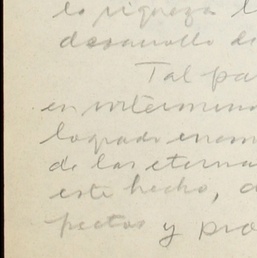 la riqueza l
desarrollo de
Tal pa
en
logrado enorm
de las eterna
este hecho, d
pectos y pro